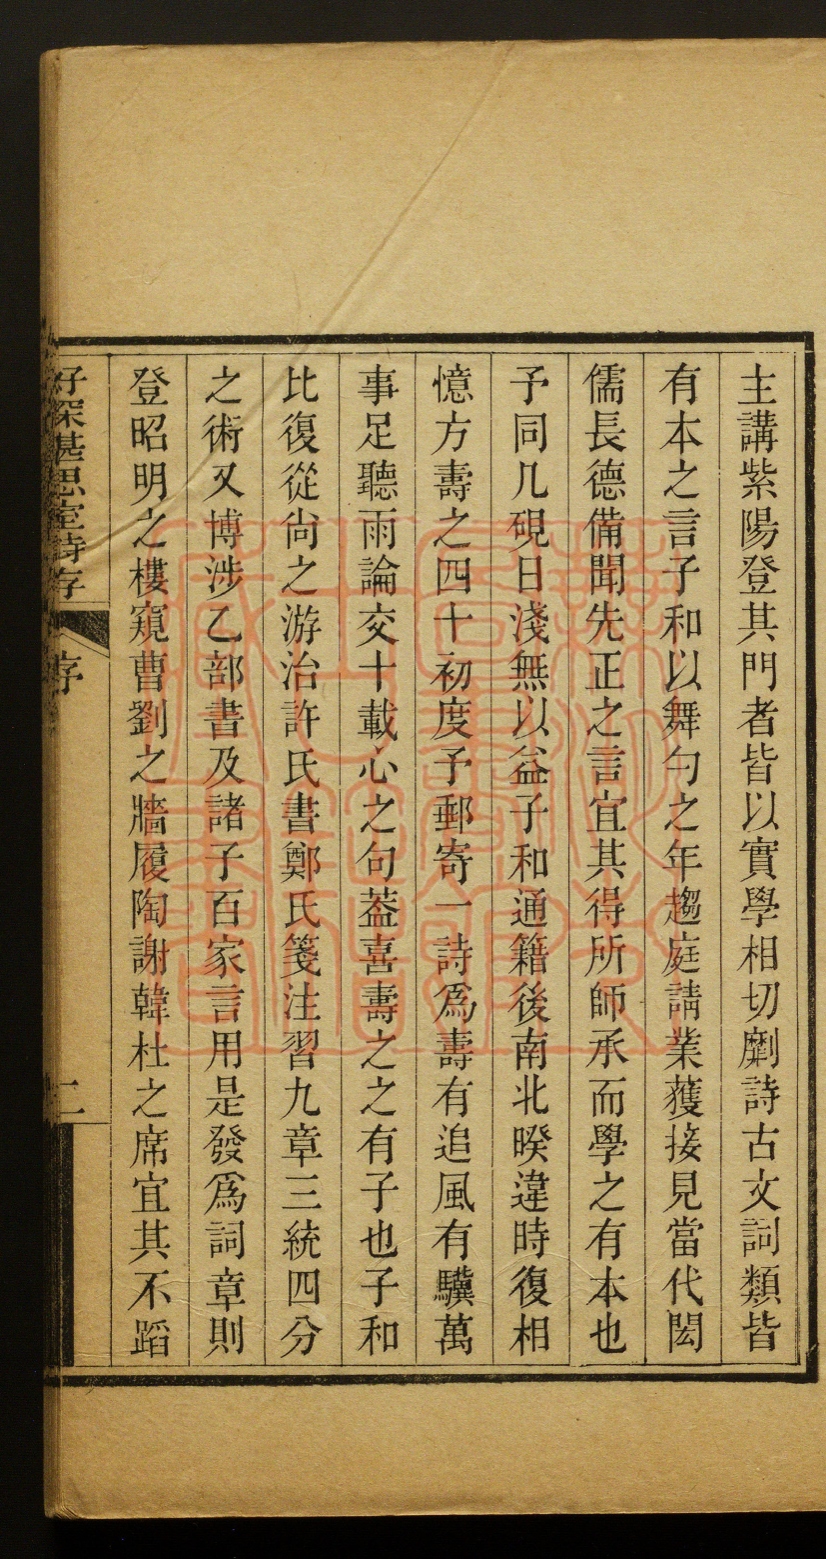 主講紫陽登其門者皆以實學相切劘詩古文詞類皆
有本之言子和以舞勺之年趨庭請業獲接見當代閎
儒長德備聞先正之言宜其得所師承而學之有本也
予同几硯日淺無以益子和通籍後南北暌違時復相
憶方壽之四十初度予郵寄一詩爲壽有追風有驥萬
事足聽雨論交十載心之句葢喜壽之之有子也子和
比復從尙之游治許氏書鄭氏箋注習九章三統四分
之術又博涉乙部書及諸子百家言用是發爲詞章則
登昭明之樓窺曹劉之牆履陶謝韓杜之席宜其不蹈
好深甚思室詩存
序
二